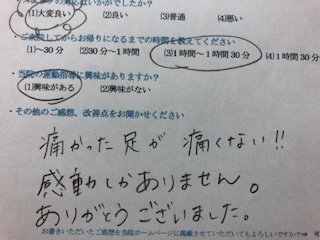 (1)大変良い (2)良い (3)普通 (4)悪い
・ご来院してからお帰りになるまでの時間を教えてください
(1)～30分 (2)30分～1時間 (3)1時間～1時間30分 (4)1時間30分
・当院の運動指導に興味がありますか?
(1)興味がある (2)興味がない
・その他のご感想、改善点をお聞かせください
痛かった足が 痛くない!!
感動しかありません。
ありがとうございました。
お書きいただいたご感想を当院ホームページに掲載させていただいてもよろしいですか?⇒